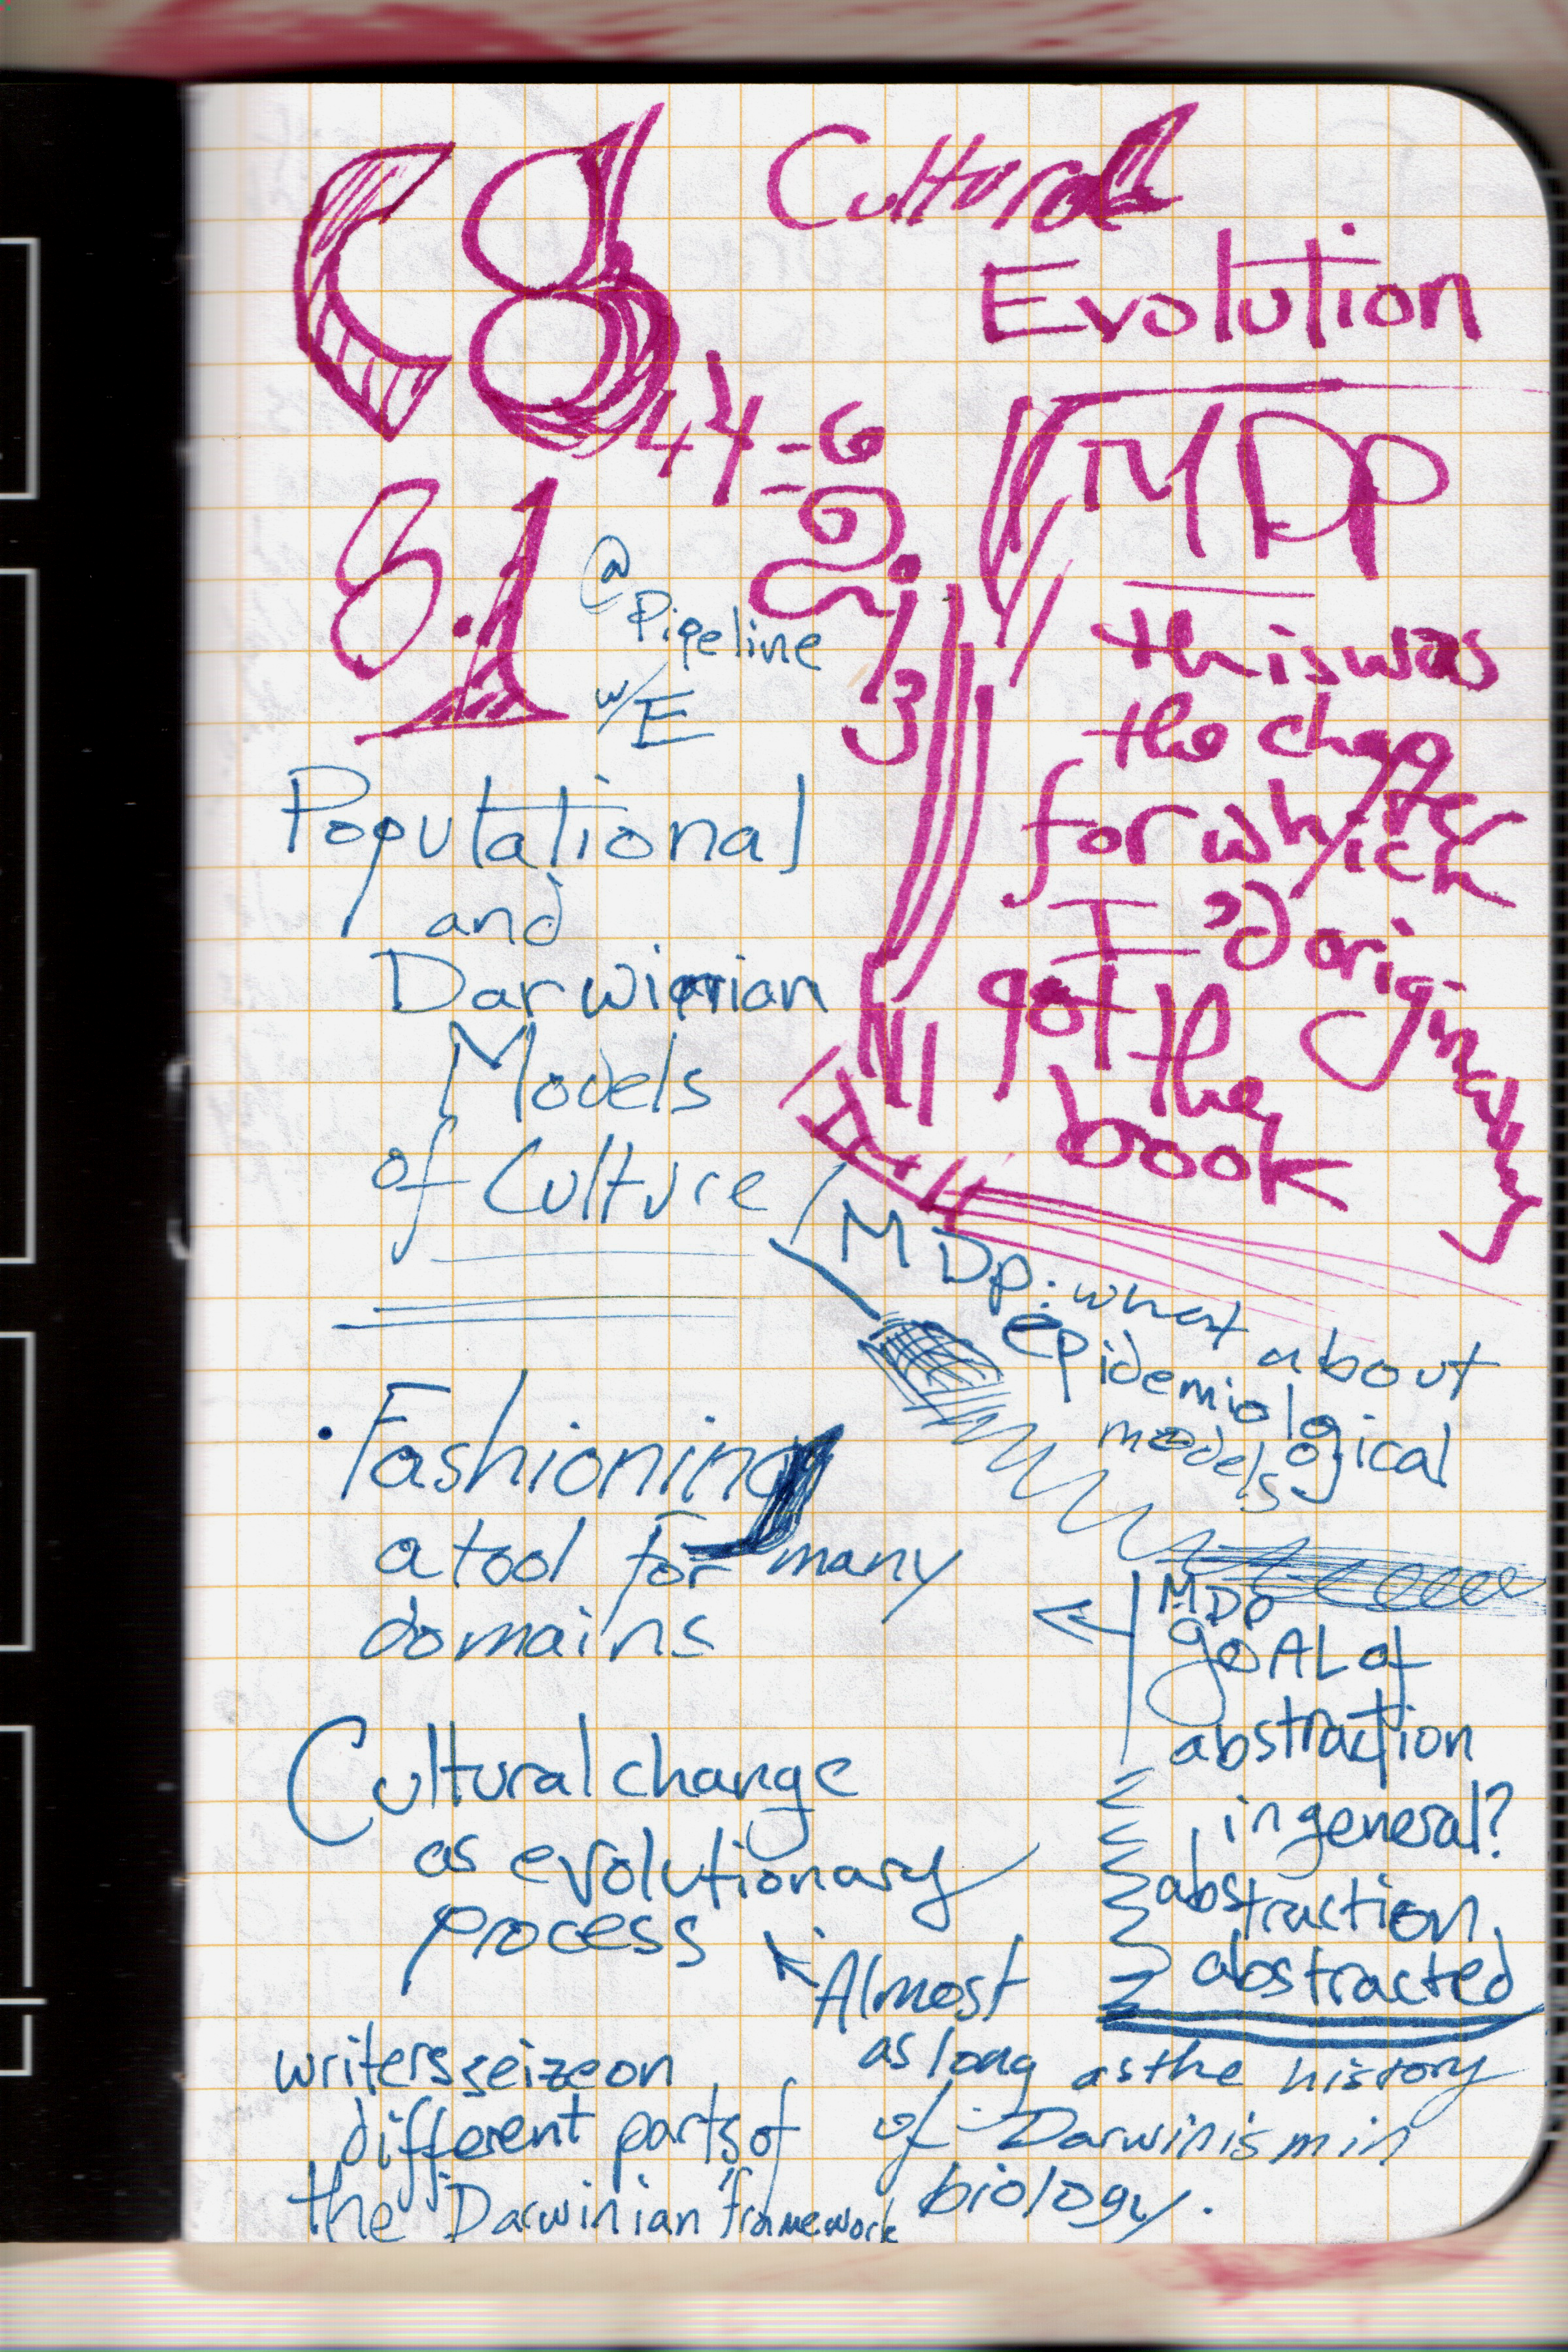 C8
Cultural
Evolution
44-6
2,
3
8.1
@
Pipeline
w/E
MDp
this was
the chapter
for which
I'd originally
got the
book
Populational
and
Darwinian
Models
of Culture
MDp: what about
epidemiological
models
• Fashioning
a tool for many
domains
MDp
gOAL of
abstraction
in general?
abstraction
abstracted
Cultural change
as evolutionary
process
Almost
as long as the history
of Darwinism in
biology.
writers seize on
different parts of
the Darwinian framework